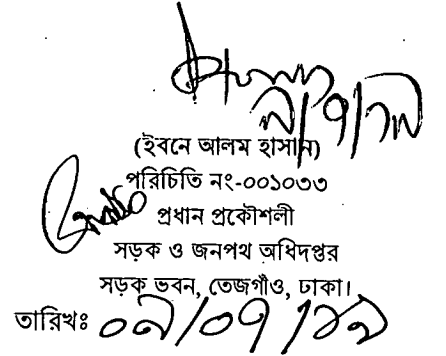 (ইবনে আলম হাসান)
পরিচিতি নং-০০১০৩৩
প্রধান প্রকৌশলী
সড়ক ও জনপথ অধিদপ্তর
সড়ক ভবন, তেজগাঁও, ঢাকা।
তারিখঃ ০৯/০৭/১৯